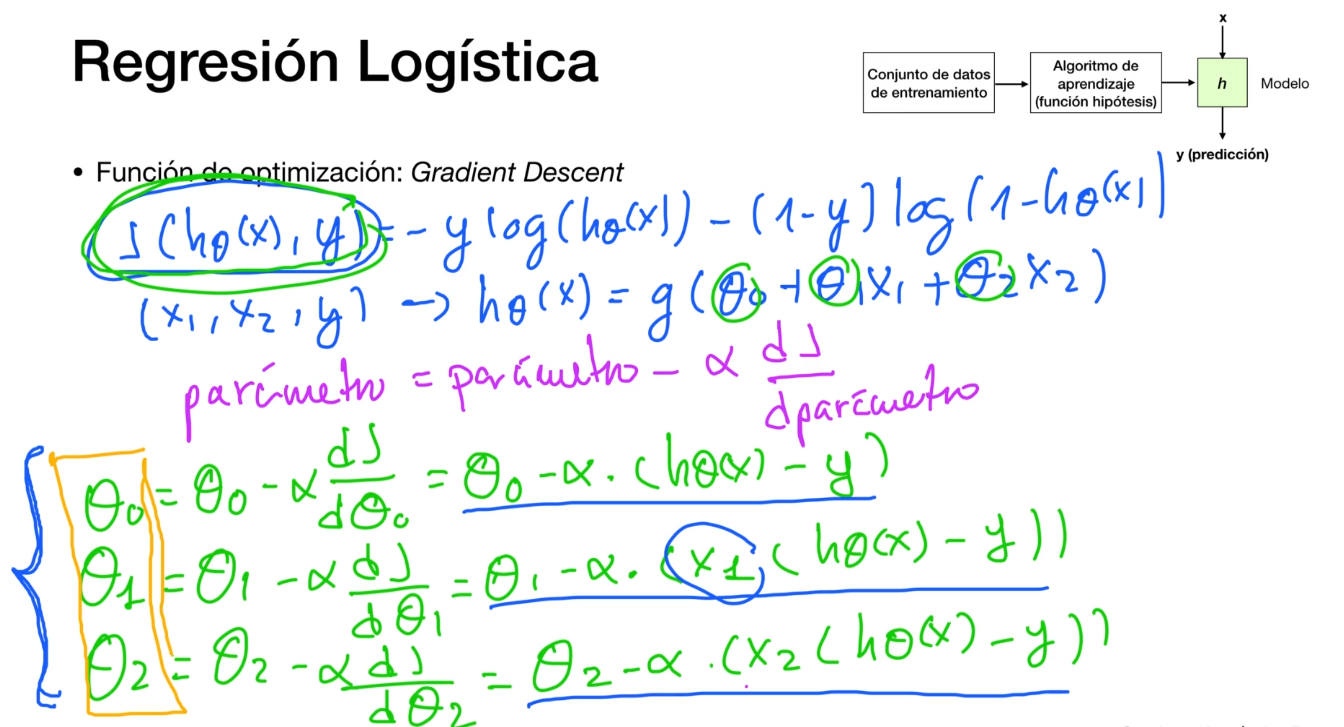 Regresión Logística
x
Conjunto de datos de entrenamiento
Algoritmo de aprendizaje (función hipótesis)
h
Modelo
y (predicción)
• Función de optimización: Gradient Descent
J(hθ(x), y) = - y log(hθ(x)) - (1-y) log(1-hθ(x)
(x₁, x₂, y) → hθ(x) = g(θ₀ + θ₁x₁ + θ₂x₂)
parámetro = parámetro - α dJ/dparámetro
θ₀ = θ₀ - α dJ/dθ₀ = θ₀ - α · (hθ(x) - y)
θ₁ = θ₁ - α dJ/dθ₁ = θ₁ - α · (x₁(hθ(x) - y))
θ₂ = θ₂ - α dJ/dθ₂ = θ₂ - α · (x₂(hθ(x) - y))